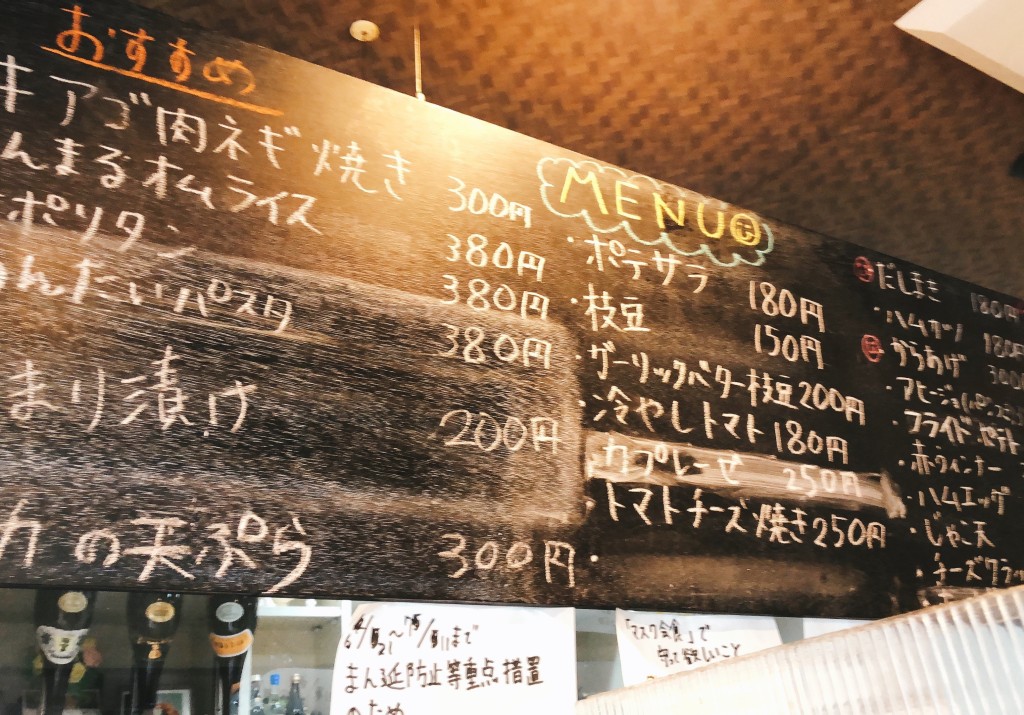 おすすめ
キアゴ肉ネギ焼き 300円
んまるオムライス 380円
ポリタン 380円
んたいパスタ 380円
まり漬け 200円
カの天ぷら 300円
MENU
・ポテサラ 180円
・枝豆 150円
・ガーリックバター枝豆 200円
・冷やしトマト 180円
カプレーゼ 250円
・トマトチーズ焼き 250円
だしまき 180円
・ハムカツ 180円
からあげ 300
・アヒージョ
・フライドポテト
・赤ウインナー
・ハムエッグ
・じゃこ天
・チーズクラッ
6/21~7/11まで
まん延防止等重点措置
のため
「マスク会食」で
守って欲しいこと